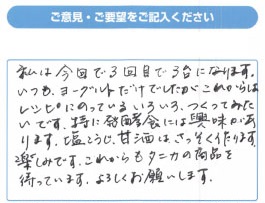 ご意見・ご要望をご記入ください
私は今回で3回目で3台になります。
いつも、ヨーグルトだけでしたがこれからは
レシピにのっているいろいろ、つくってみた
いです。特に発酵食には興味があ
ります。塩こうじ、甘酒は、さっそく作ります。
楽しみです。これからもタニカの商品を
待っています。よろしくお願いします。